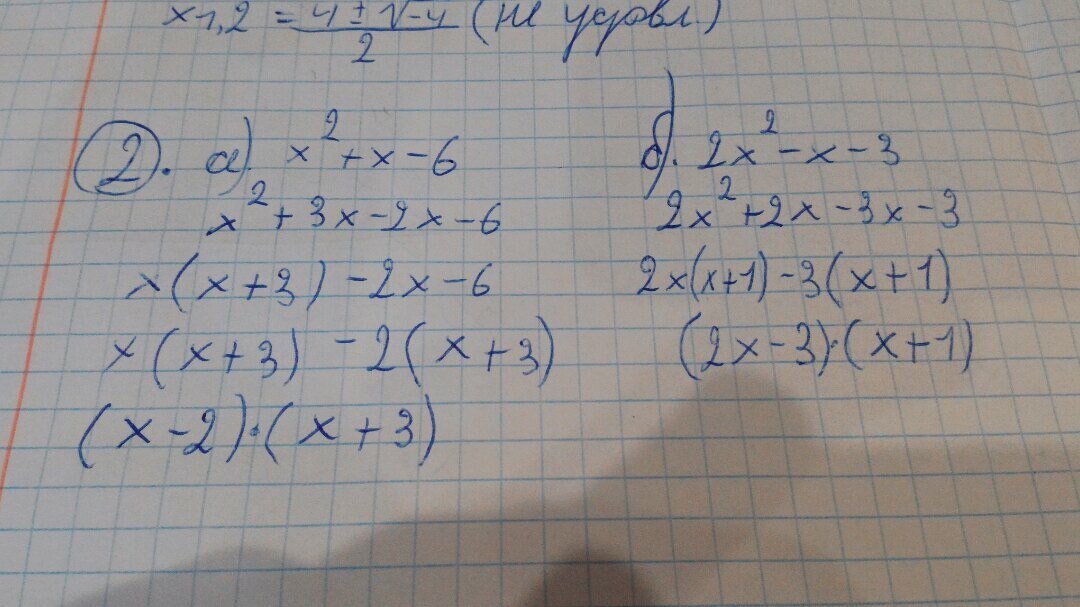 x1,2 = 4 ± √-4 / 2 (не удовл.)
2. а) x² + x - 6
x² + 3x - 2x - 6
x(x+3) - 2x - 6
x(x+3) - 2(x+3)
(x-2)·(x+3)
б). 2x² - x - 3
2x² + 2x - 3x - 3
2x(x+1) - 3(x+1)
(2x-3)·(x+1)